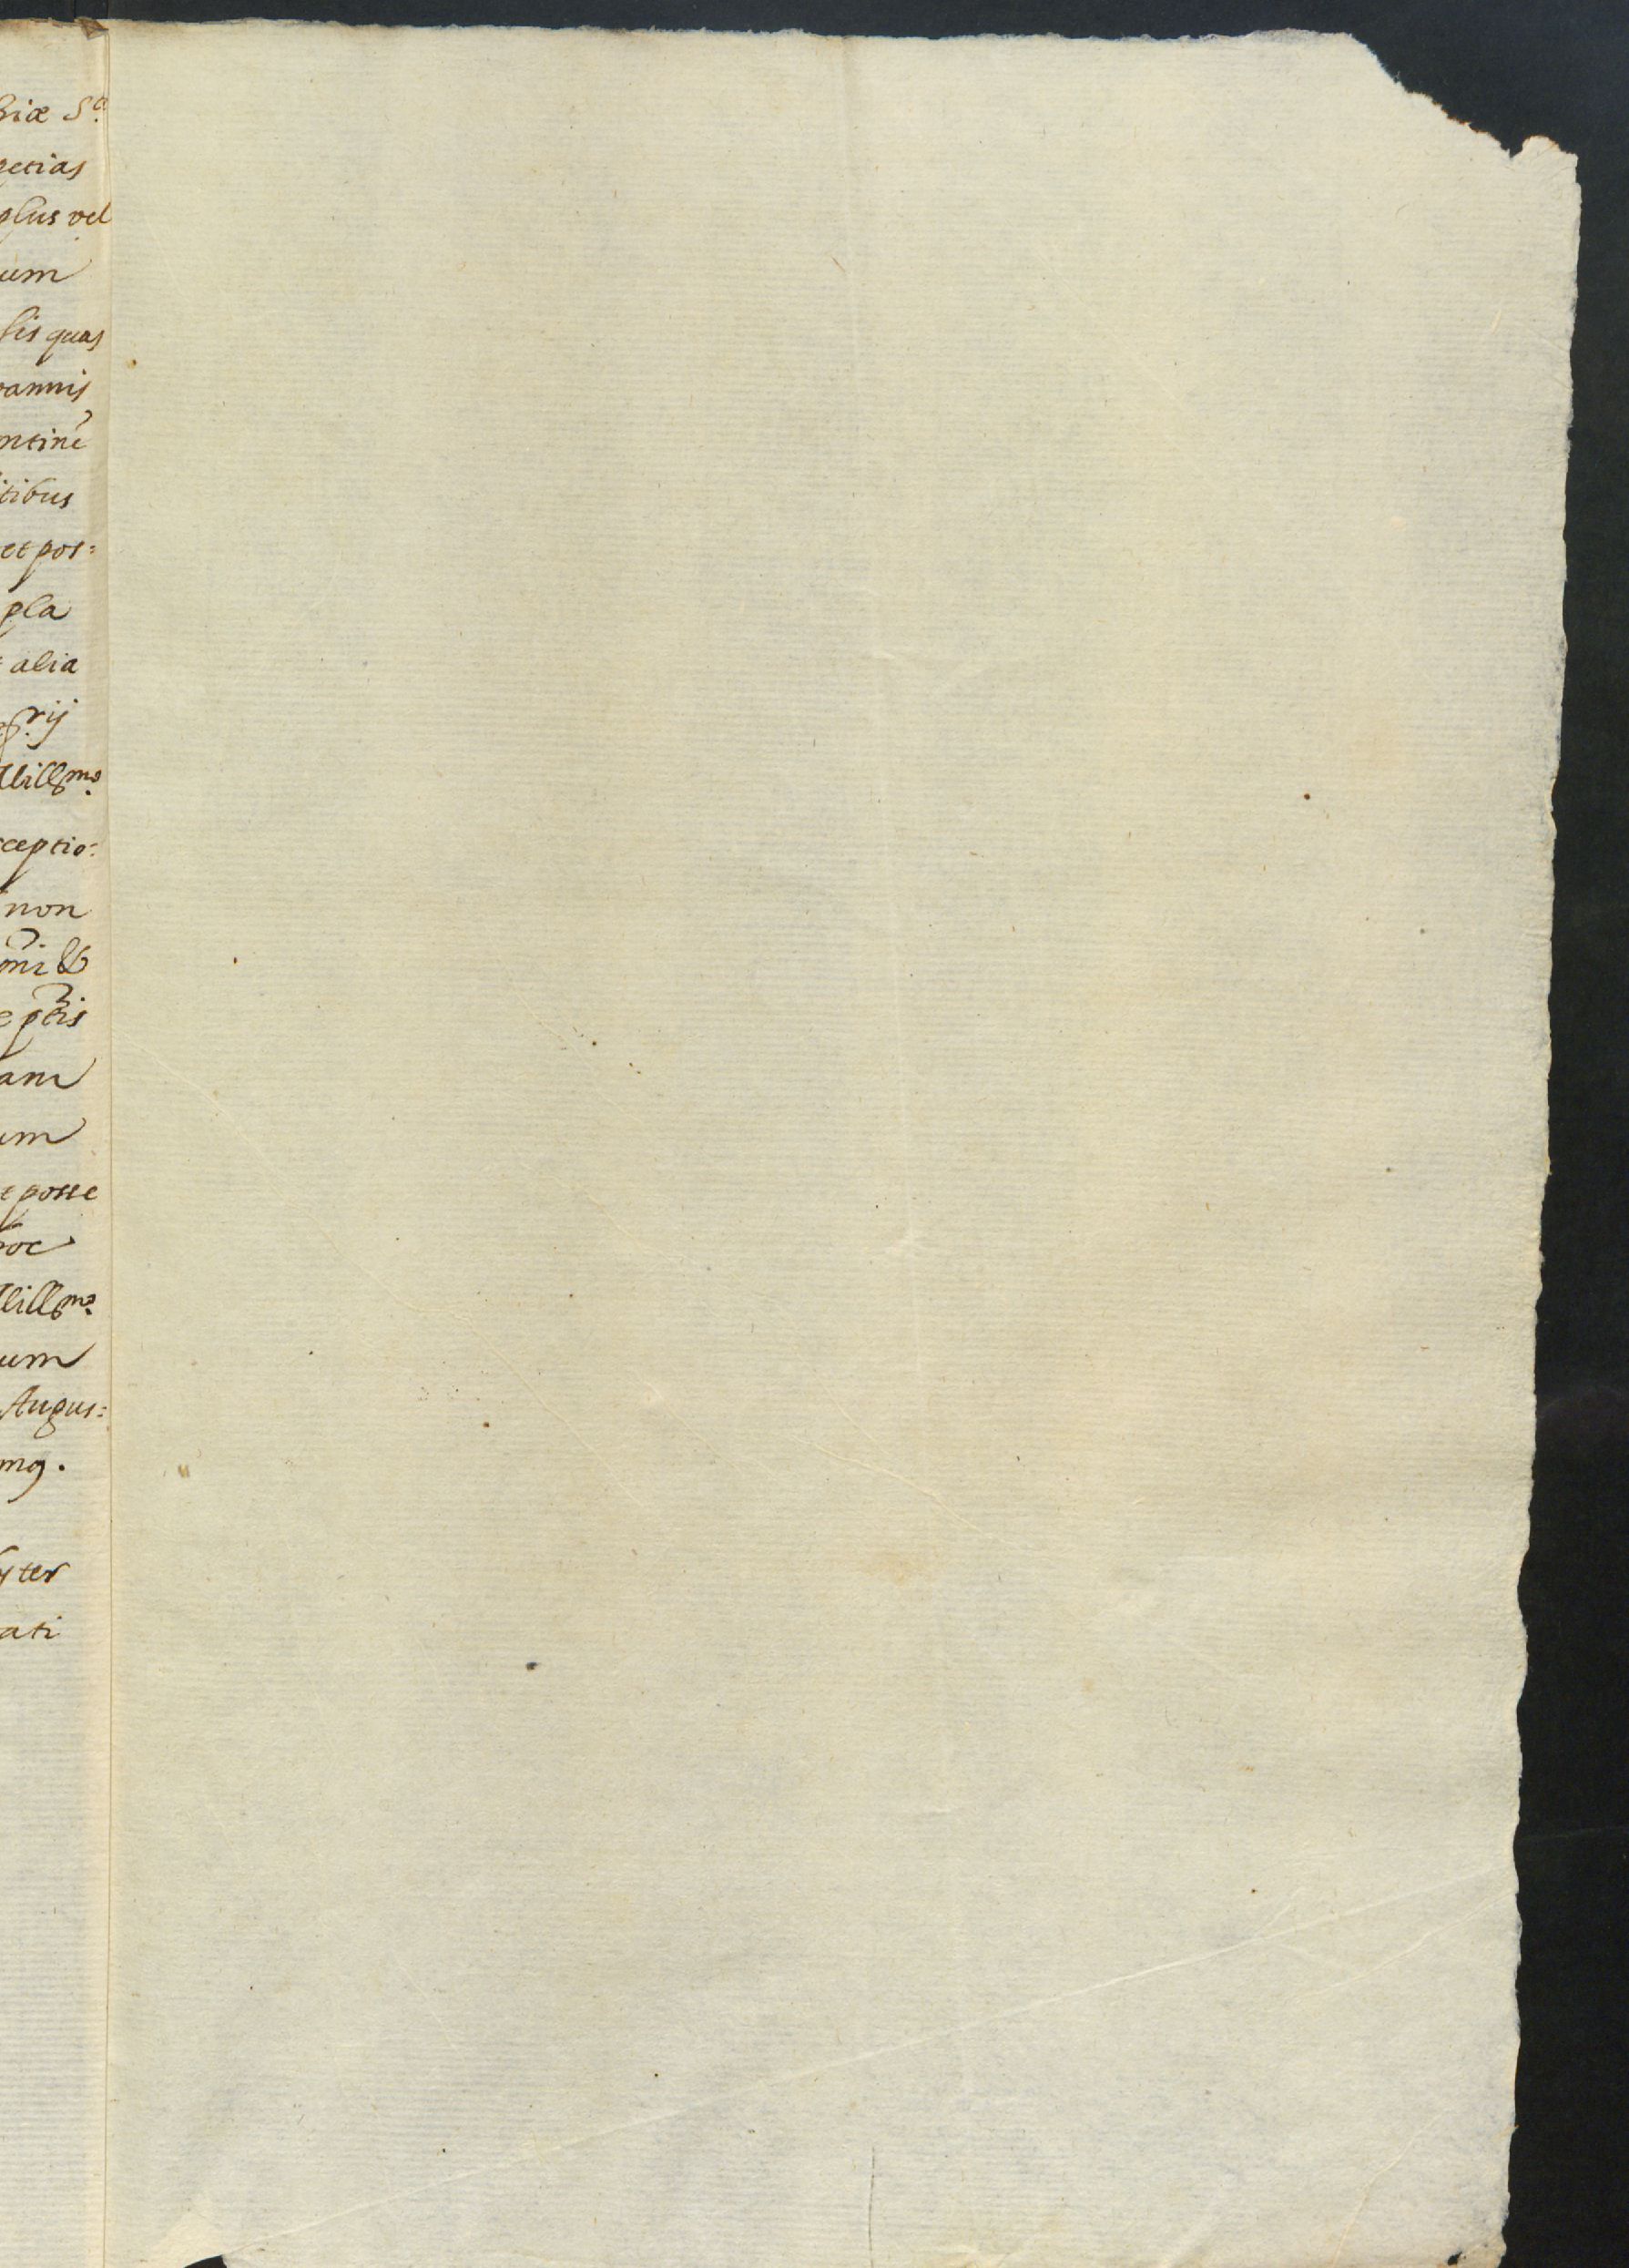 giæ S.
getias
plus vel
um
sis quas
oannis
ntine
itibus
et pos=
pla
alia
rij
Uillmo.
ceptio=
non
oni &
e ptis
am
um
e posse
hoc
Uillmo.
um
Augus=
mg.
yter
ati